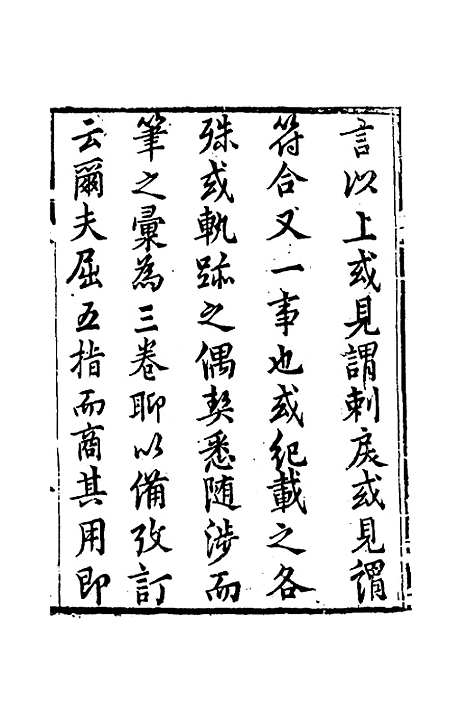 言以上或見謂刺戾或見謂
符合又一事也或紀載之各
殊或軌跡之偶契悉随涉而
筆之彙為三卷聊以備攷訂
云爾夫屈五指而商其用即